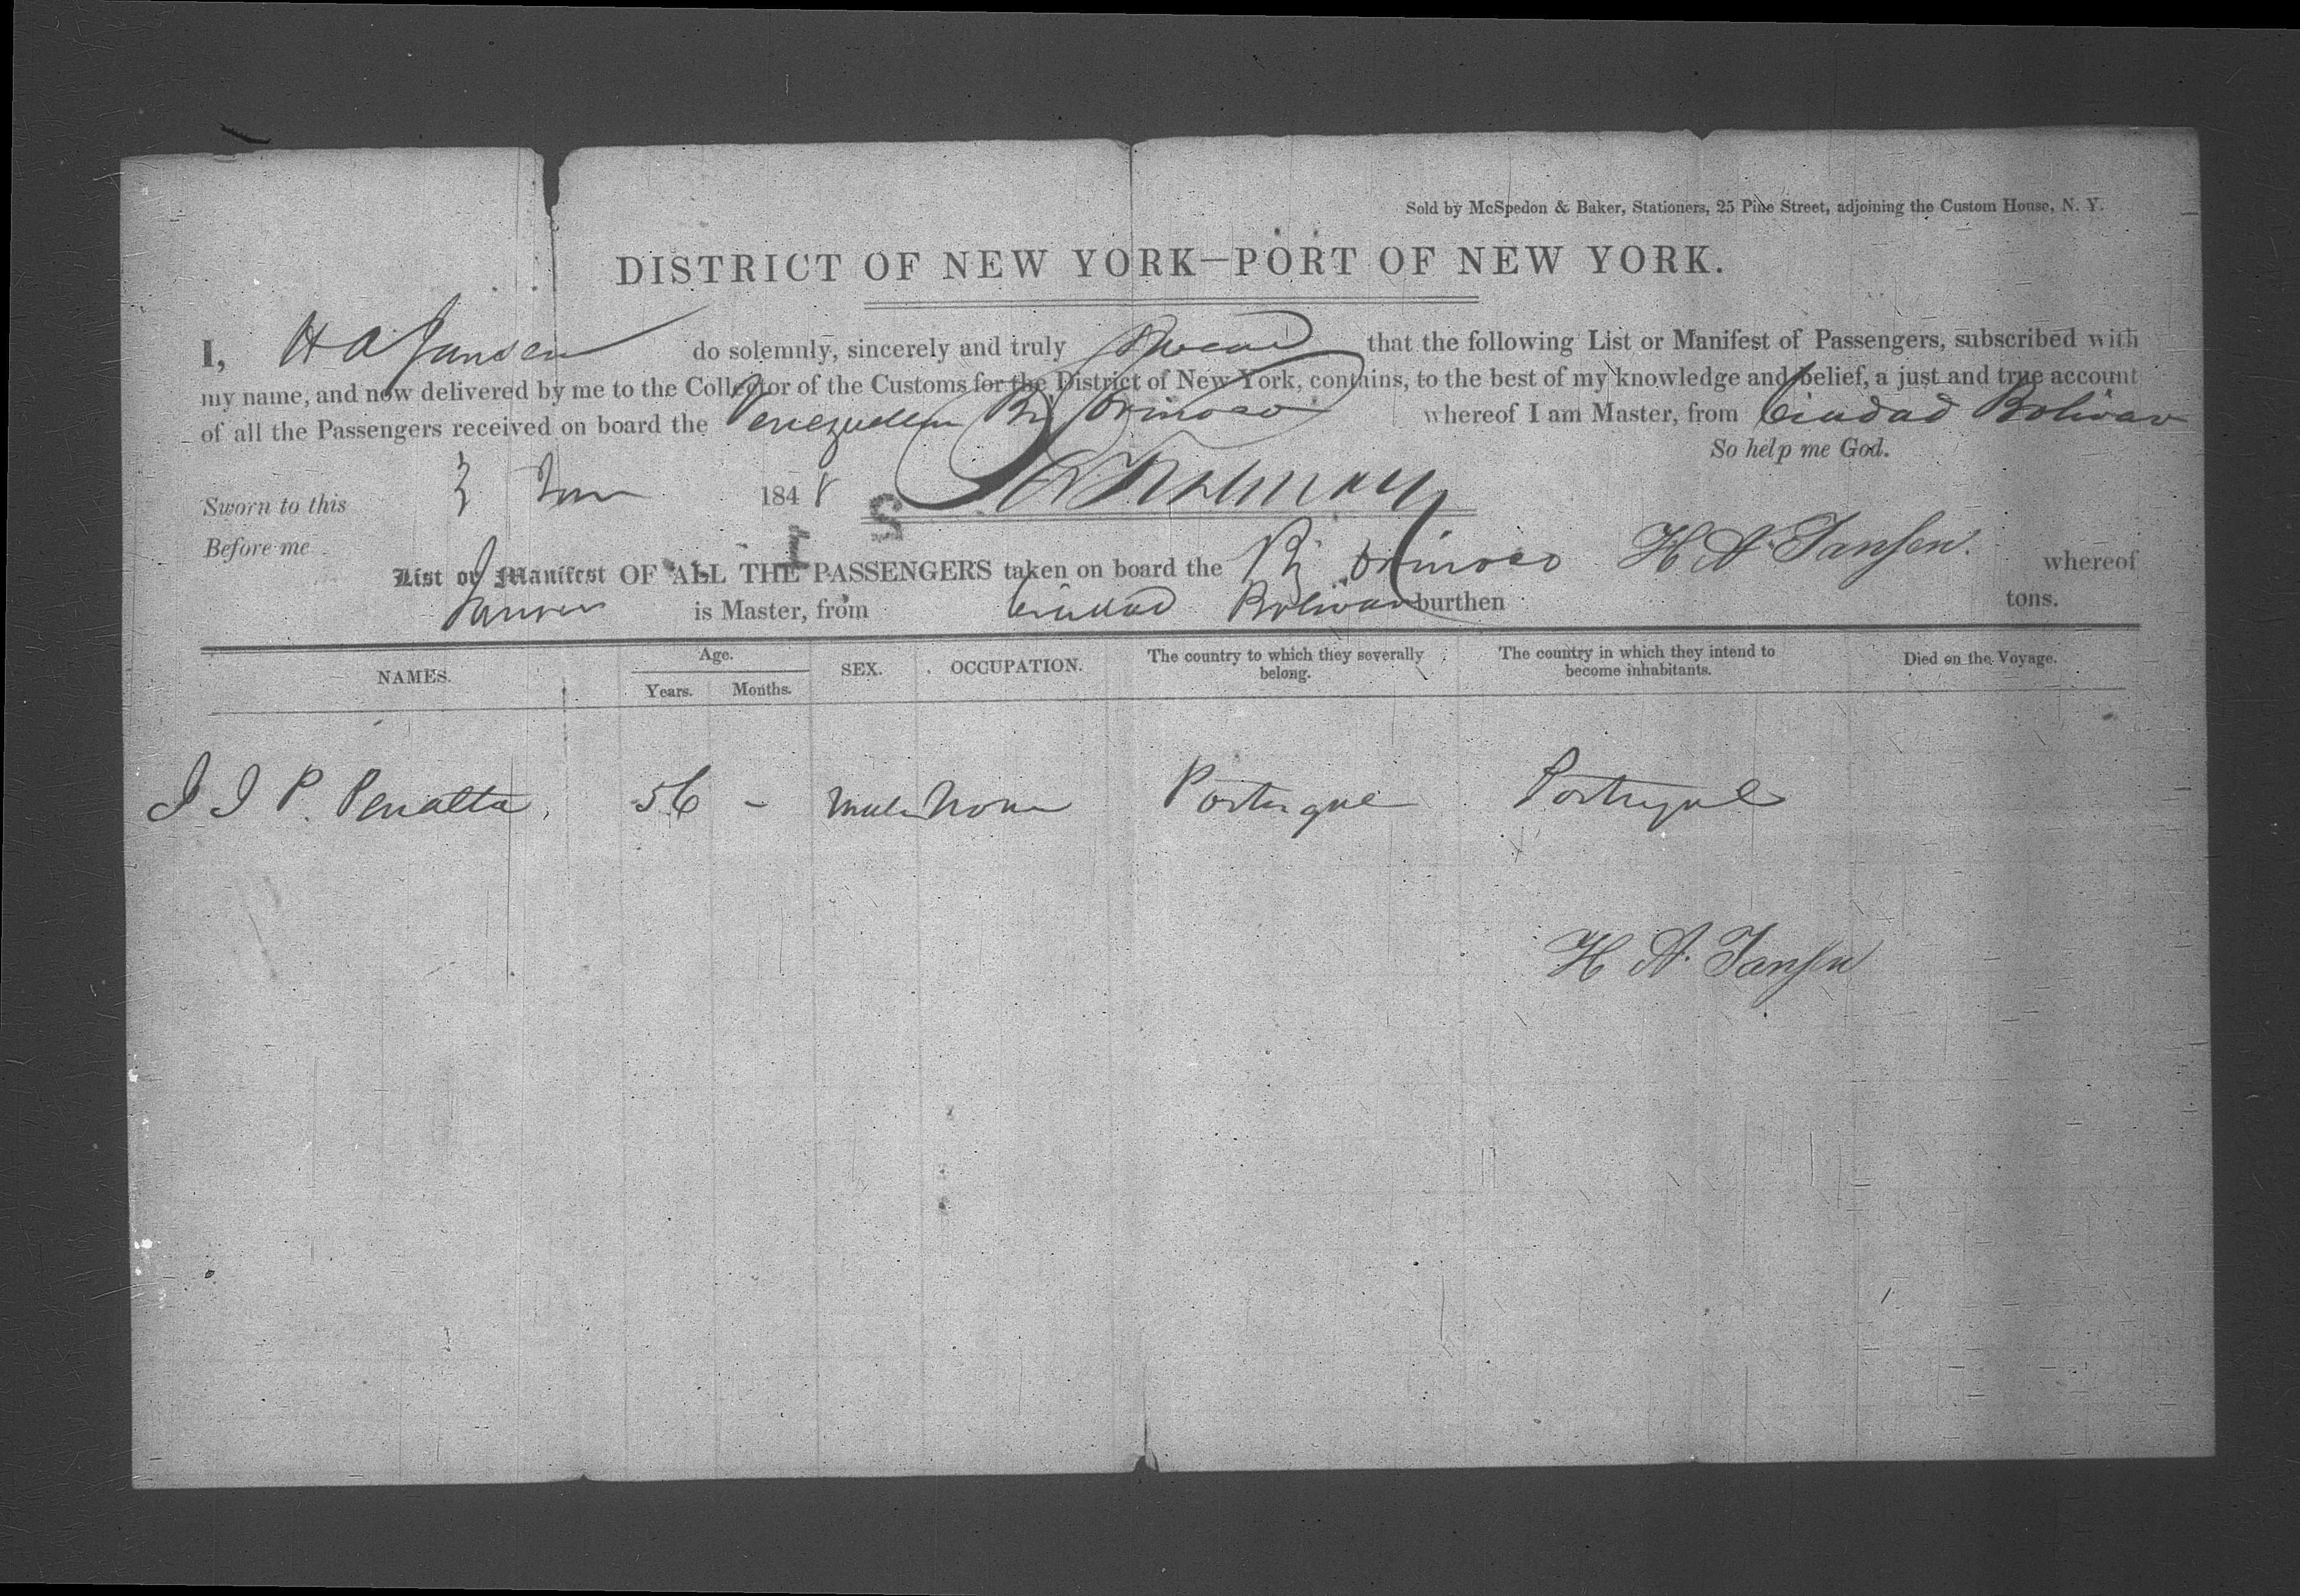 Sold by McSpedon & Baker, Stationers, 25 Pine Street, adjoining the Custom House, N. Y.
DISTRICT OF NEW YORK—PORT OF NEW YORK.
I, H A Jansen do solemnly, sincerely and truly Swear that the following List or Manifest of Passengers, subscribed with
my name, and now delivered by me to the Collector of the Customs for the District of New York, contains, to the best of my knowledge and belief, a just and true account
of all the Passengers received on board the Venezuelan Br Orinoco whereof I am Master, from Ciudad Bolivar
So help me God.
Sworn to this 3 1848
Before me H A Jansen.
List or Manifest OF ALL THE PASSENGERS taken on board the Br Orinoco whereof
Jansen is Master, from Ciudad Bolivar burthen tons.
NAMES. Age. Years. Months. SEX. OCCUPATION. The country to which they severally belong. The country in which they intend to become inhabitants. Died on the Voyage.
J J P. Peralta, 56 - Male None Portugal Portugal
H A. Jansen